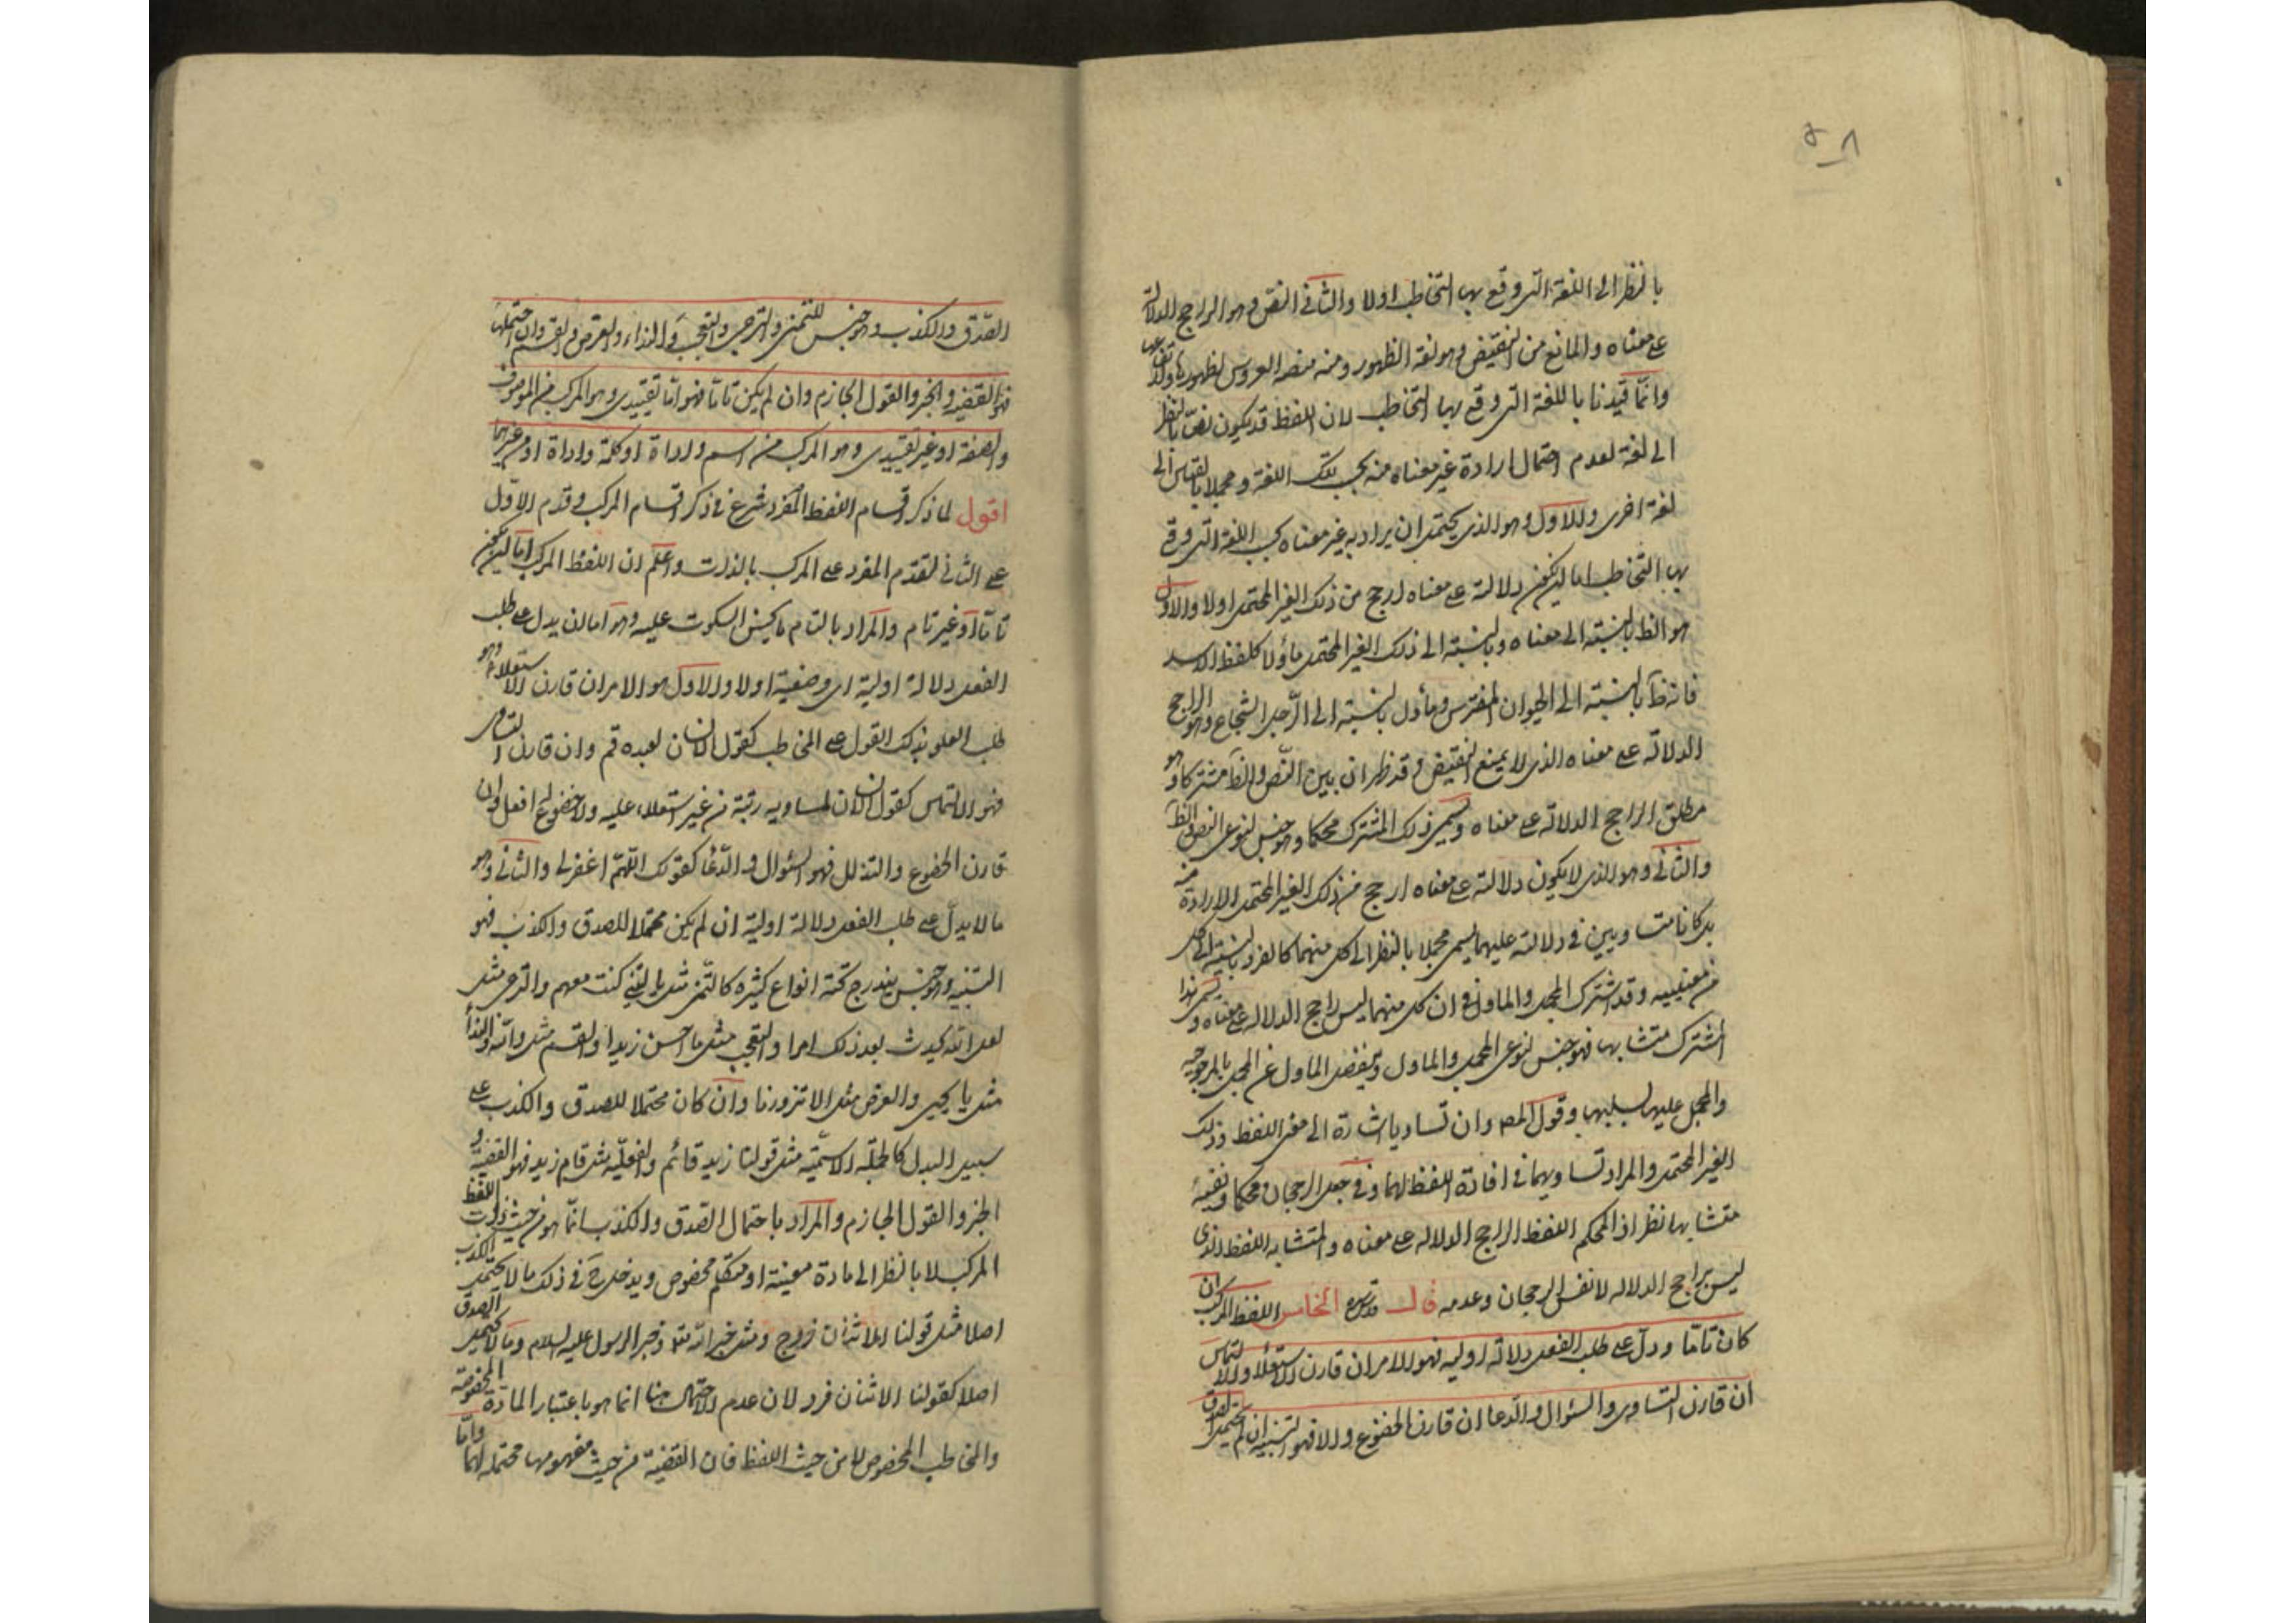 ٥٨
بالنظر الى اللغة التى وقع بها التخاطب اولا والثانى النص وهو الراجح الدلالة
على معناه والمانع من النقيض وهو لغة الظهور ومنه منصة العروس لظهورها
وانما قيدنا باللغة التى وقع بها التخاطب لان اللفظ قد يكون نصا بالنظر
الى لغة لعدم احتمال ارادة غير معناه منه بحسب تلك اللغة ومجملا بالقياس الى
لغة اخرى والاول وهو الذى يحتمل ان يراد به غير معناه بحسب اللغة التى وقع
بها التخاطب اما ان يكون دلالته على معناه ارجح من ذلك الغير المحتمل اولا والاول
هو الظ بالنسبة الى معناه وبالنسبة الى ذلك الغير المحتمل مأولا كلفظ الاسد
فانه ظ بالنسبة الى الحيوان المفترس ومأول بالنسبة الى الرجل الشجاع وهو الراجح
الدلالة على معناه الذى لا يمنع النقيض وقد ظهر ان بين النص والظ مشتركا وهو
مطلق الراجح الدلالة على معناه ويسمى ذلك المشترك محكما وهو جنس لنوعى النص والظ
والثانى وهو الذى لا يكون دلالته على معناه ارجح من ذلك الغير المحتمل الارادة منه
بل كانا متساويين فى دلالته عليهما يسمى مجملا بالنظر الى كل منهما كالقرء بالنسبة الى كل
من معنييه وقد اشترك المجمل والماول فى ان كل منهما ليس راجح الدلالة على معناه ويسمى هذا
المشترك متشابها فهو جنس لنوعى المجمل والماول وينفصل الماول عن المجمل بالمرجوحية
والمجمل عليها بسلبها وقول المص وان تساويا اشارة الى معنى اللفظ وذلك
الغير المحتمل والمراد تساويهما فى افادة اللفظ لهما وفى جعل الرجحان محكما ونفيه
متشابها نظر اذ المحكم اللفظ الراجح الدلالة على معناه والمتشابه اللفظ الذى
ليس براجح الدلالة لا نفس الرجحان وعدمه قال قدس سره الخامس اللفظ المركب ان
كان تاما ودل على طلب الفعل دلالة اولية فهو الامر ان قارن الاستعلاء والالتماس
ان قارن التساوى والسؤال والدعا ان قارن الخضوع والا فهو التنبيه ان لم يحتمل الصدق
الصدق والكذب وهو جنس للتمنى والترجى والتعجب والنداء والعرض والقسم وان احتملها
فهو القضية والخبر والقول الجازم وان لم يكن تاما فهو اما تقييدى وهو المركب من الموصوف
والصفة او غير تقييدى وهو المركب من اسم واداة او كلمة واداة او من غيرهما
اقول لما ذكر اقسام اللفظ المفرد شرع فى ذكر اقسام المركب وقدم الاول
على الثانى لتقدم المفرد على المركب بالذات واعلم ان اللفظ المركب اما ان يكون
تاما او غير تام والمراد بالتام ما يحسن السكوت عليه وهو اما ان يدل على طلب
الفعل دلالة اولية اى وضعية اولا والاول هو الامر ان قارن الاستعلاء وهو
طلب العلو بذلك القول على المخاطب كقول الانسان لعبده قم وان قارن التساوى
فهو الالتماس كقول الانسان لمساويه رتبة من غير استعلاء عليه ولا خضوع افعل وان
قارن الخضوع والتذلل فهو السؤال والدعا كقولك اللهم اغفر لى والثانى وهو
ما لا يدل على طلب الفعل دلالة اولية ان لم يكن محتملا للصدق والكذب فهو
التنبيه وهو جنس يندرج تحته انواع كثيرة كالتمنى مثل يا ليتنى كنت معهم والترجى مثل
لعل الله يحدث بعد ذلك امرا والتعجب مثل ما احسن زيدا والقسم مثل والله والندا
مثل يا يحيى والعرض مثل الا تزورنا وان كان محتملا للصدق والكذب على
سبيل البدل كالجملة الاسمية مثل قولنا زيد قائم والفعلية مثل قام زيد فهو القضية و
الخبر والقول الجازم والمراد باحتمال الصدق والكذب انما هو من حيث ذات اللفظ
المركب لا بالنظر الى مادة معينة او متكلم مخصوص ويدخل ح فى ذلك ما لا يحتمل الكذب
اصلا مثل قولنا الاثنان زوج ومثل خبر الله تعا وخبر الرسول عليه السلام وما لا يحتمل الصدق
اصلا كقولنا الاثنان فرد لان عدم الاحتمال هنا انما هو باعتبار المادة المخصوصة
والمخاطب المخصوص لا من حيث اللفظ فان القضية من حيث مفهومها محتملة لهما واما